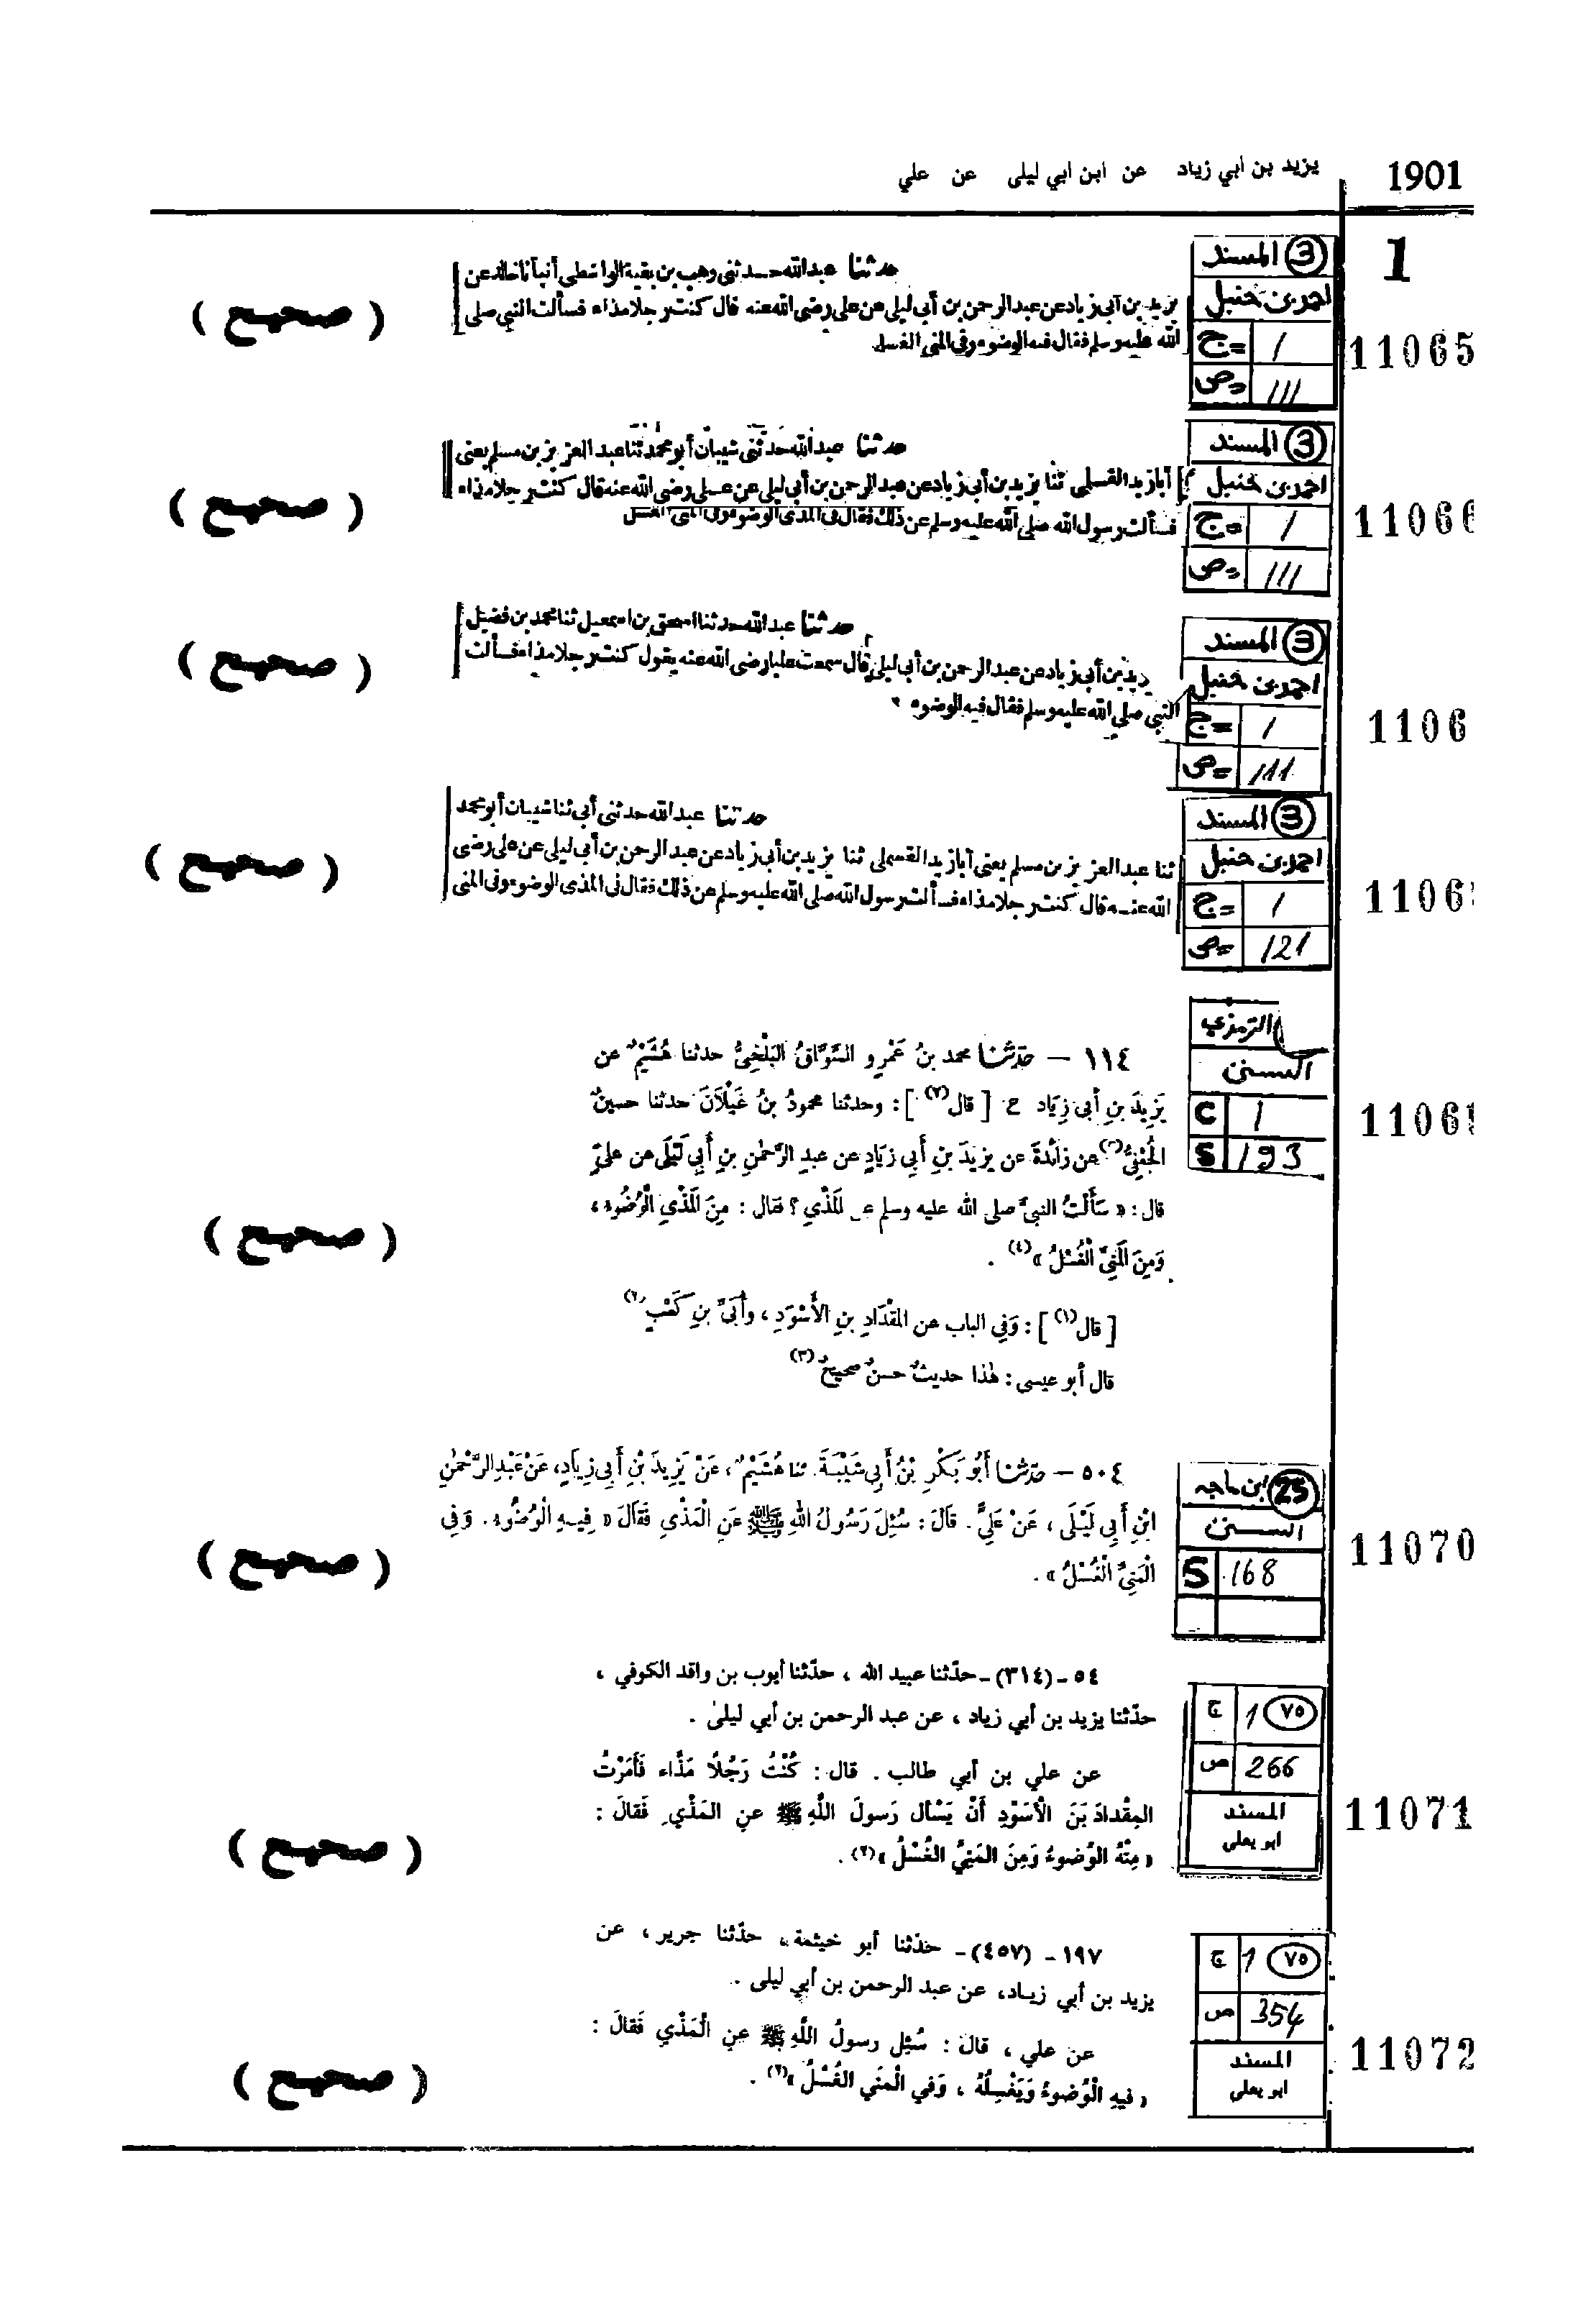 1901
يزيد بن أبي زياد عن ابن ابي ليلى عن علي
1
3 المسند
احمد بن حنبل
ج= 1
ص= 111
11065
حدثنا عبد الله حدثنى وهب بن بقية الواسطى أنبأنا خالد عن
يزيد بن أبى زياد عن عبد الرحمن بن أبى ليلى عن على رضى الله عنه قال كنت رجلا مذاء فسألت النبى صلى
الله عليه وسلم فقال فيه الوضوء وفى المنى الغسل
( صحيح )
3 المسند
احمد بن حنبل
ج= 1
ص= 111
11066
حدثنا عبد الله حدثنى شيبان أبو محمد ثنا عبد العزيز بن مسلم يعنى
أبا زيد القسملى ثنا يزيد بن أبى زياد عن عبد الرحمن بن أبى ليلى عن على رضى الله عنه قال كنت رجلا مذاء
فسألت رسول الله صلى الله عليه وسلم عن ذلك فقال فى المذى الوضوء وفى المنى الغسل
( صحيح )
3 المسند
احمد بن حنبل
ج= 1
ص= 111
1106
حدثنا عبد الله حدثنا اسحق بن اسمعيل ثنا محمد بن فضيل
يزيد بن أبى زياد عن عبد الرحمن بن أبى ليلى قال سمعت عليا رضى الله عنه يقول كنت رجلا مذاء فسألت
النبى صلى الله عليه وسلم فقال فيه الوضوء
( صحيح )
3 المسند
احمد بن حنبل
ج= 1
ص= 121
1106
حدثنا عبد الله حدثنى أبى ثنا شيبان أبو محمد
ثنا عبد العزيز بن مسلم يعنى أبا زيد القسملى ثنا يزيد بن أبى زياد عن عبد الرحمن بن أبى ليلى عن على رضى
الله عنه قال كنت رجلا مذاء فسألت رسول الله صلى الله عليه وسلم عن ذلك فقال فى المذى الوضوء وفى المنى
( صحيح )
الترمذي
السنن
C 1
S 193
1106
١١٤ — حدثنا محمد بنُ عَمْرٍو السَّوَّاقُ البَلْخِيُّ حدثنا هُشَيْمٌ عن
يَزِيدَ بنِ أبى زِيَاد ح [ قال (٢) ] : وحدثنا محمودُ بنُ غَيْلَانَ حدثنا حسينٌ
الجُعْفِيُّ (٣) عن زائدةَ عن يزيدَ بنِ أبى زيَادٍ عن عبدِ الرَّحمٰنِ بنِ أبِى لَيْلَى عن علىٍّ
قال : « سَأَلْتُ النبىَّ صلى الله عليه وسلم عن المَذْىِ ؟ فقال : مِنَ المَذْىِ الْوُضُوءِ ،
وَمِنَ المَنِىِّ الْغُسْلُ » (٤) .
[ قال (١) ] : وَفِى الباب عن المِقْدَادِ بنِ الأَسْوَدِ ، وأُبَىِّ بنِ كَعْبٍ (٢)
قال أبو عيسى : هٰذا حديثٌ حسنٌ صحيحٌ (٣)
( صحيح )
25 ابن ماجه
السنن
S 168
11070
٥٠٤ — حدثنا أَبُو بَكْرِ بْنُ أَبِى شَيْبَةَ. ثنا هُشَيْمٌ ، عَنْ يَزِيدَ بْنِ أَبِى زِيَادٍ، عَنْ عَبْدِ الرَّحْمٰنِ
ابْنِ أَبِى لَيْلَى ، عَنْ عَلِىٍّ . قَالَ : سُئِلَ رَسُولُ اللهِ ﷺ عَنِ الْمَذْىِ فَقَالَ « فِيهِ الْوُضُوءِ . وَفِى
الْمَنِىِّ الْغُسْلُ » .
( صحيح )
٧٥ 1 ج
266 ص
المسند
ابو يعلى
11071
٥٤ - (٣١٤) - حدّثنا عبيد الله ، حدّثنا أيوب بن واقد الكوفي ،
حدّثنا يزيد بن أبي زياد ، عن عبد الرحمن بن أبي ليلىٰ .
عن علي بن أبي طالب . قال : كُنْتُ رَجُلاً مَذَّاء فَأَمَرْتُ
المِقْدادَ بَنَ الْأَسوَدِ أَنْ يَسْأل رَسولَ اللَّهِ ﷺ عنِ المَذْيِ فَقالَ :
« مِنْهُ الوُضوءُ وَمِنَ المَنِيِّ الغُسْلُ » (٢) .
( صحيح )
٧٥ 1 ج
354 ص
المسند
ابو يعلى
11072
١٩٧ - (٤٥٧) - حدّثنا أبو خيثمة ، حدّثنا جرير ، عن
يزيد بن أبي زياد، عن عبد الرحمن بن أبي ليلى .
عن علي ، قال : سُئِل رسولُ اللَّهِ ﷺ عنِ الْمَذْيِ فَقالَ :
« فيهِ الْوُضوءُ وَيَغْسِلُهُ ، وَفي الْمَني الغُسْلُ » (٢) .
( صحيح )